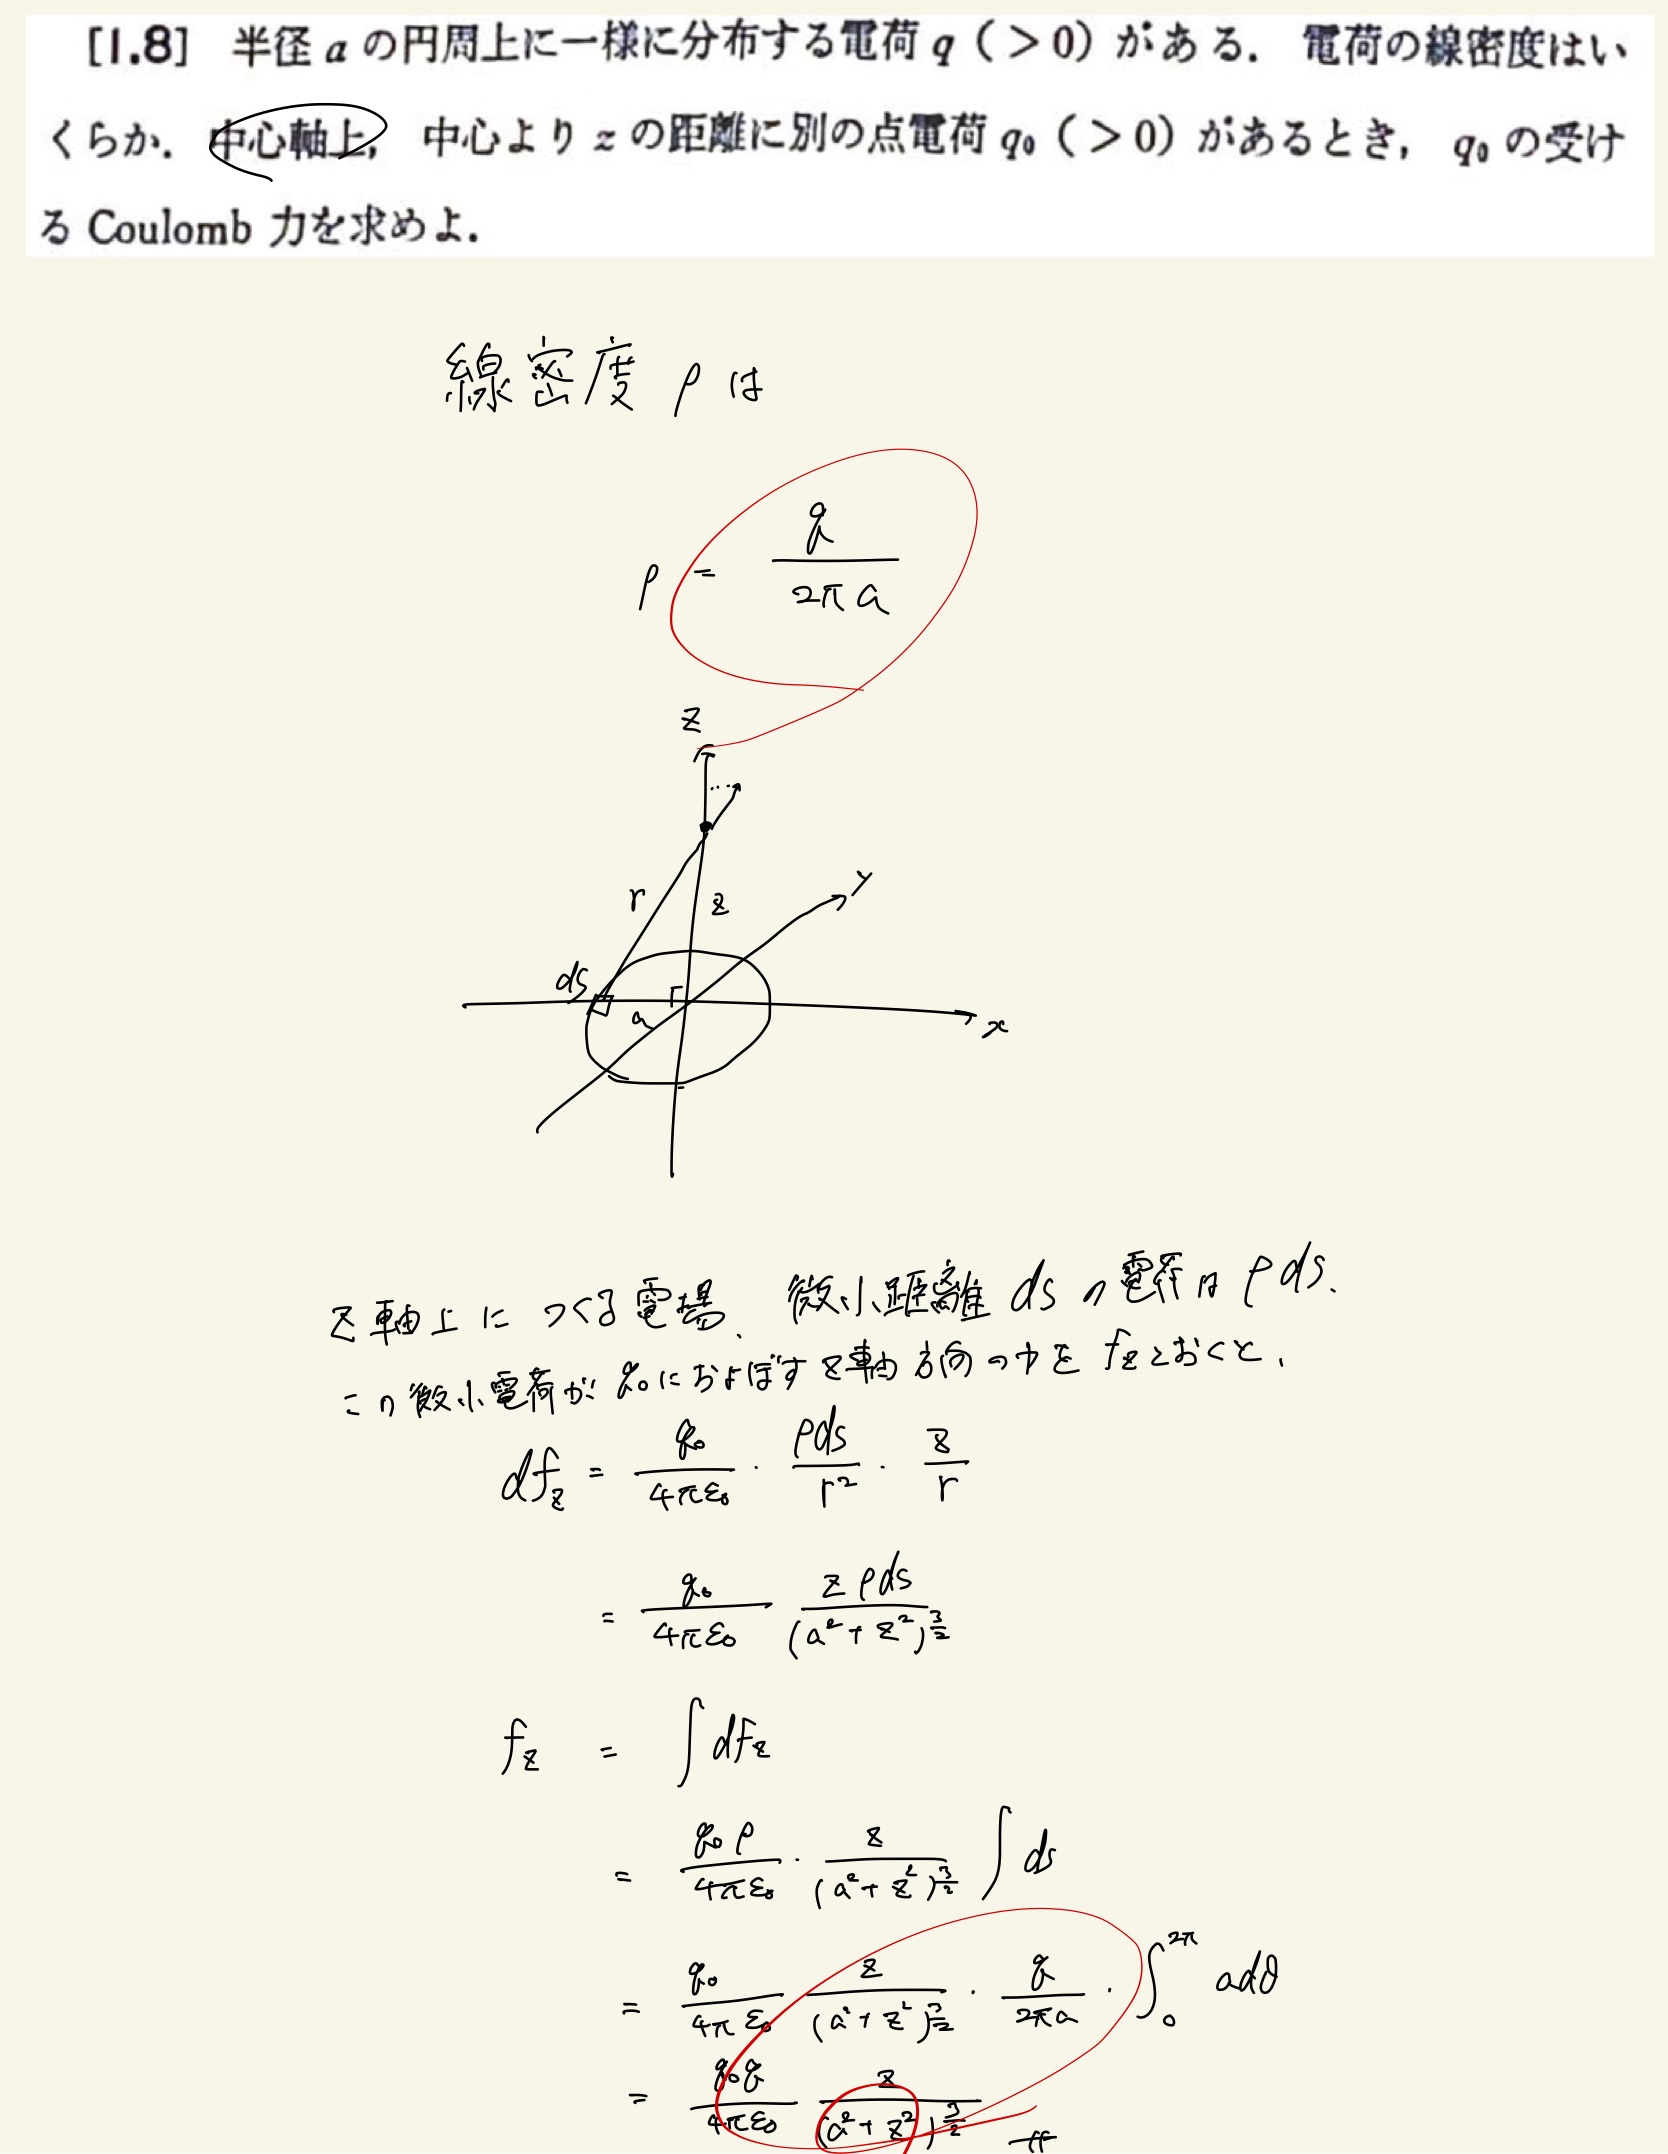 [1.8] 半径 a の円周上に一様に分布する電荷 q (>0) がある. 電荷の線密度はい
くらか. 中心軸上, 中心より z の距離に別の点電荷 q₀ (>0) があるとき, q₀ の受け
る Coulomb 力を求めよ.
線密度 ρ は
ρ = q / 2πa
z
r
z
y
ds
a
x
z軸上につくる電場、微小距離 ds の電荷は ρds.
この微小電荷が q₀におよぼすz軸方向の力を fz とおくと,
dfz = q₀ / 4πε₀ · ρds / r² · z / r
= q₀ / 4πε₀ zρds / (a² + z²)^(3/2)
fz = ∫ dfz
= q₀ρ / 4πε₀ · z / (a² + z²)^(3/2) ∫ ds
= q₀ / 4πε₀ z / (a² + z²)^(3/2) · q / 2πa · ∫₀^2π adθ
= q₀q / 4πε₀ z / (a² + z²)^(3/2)